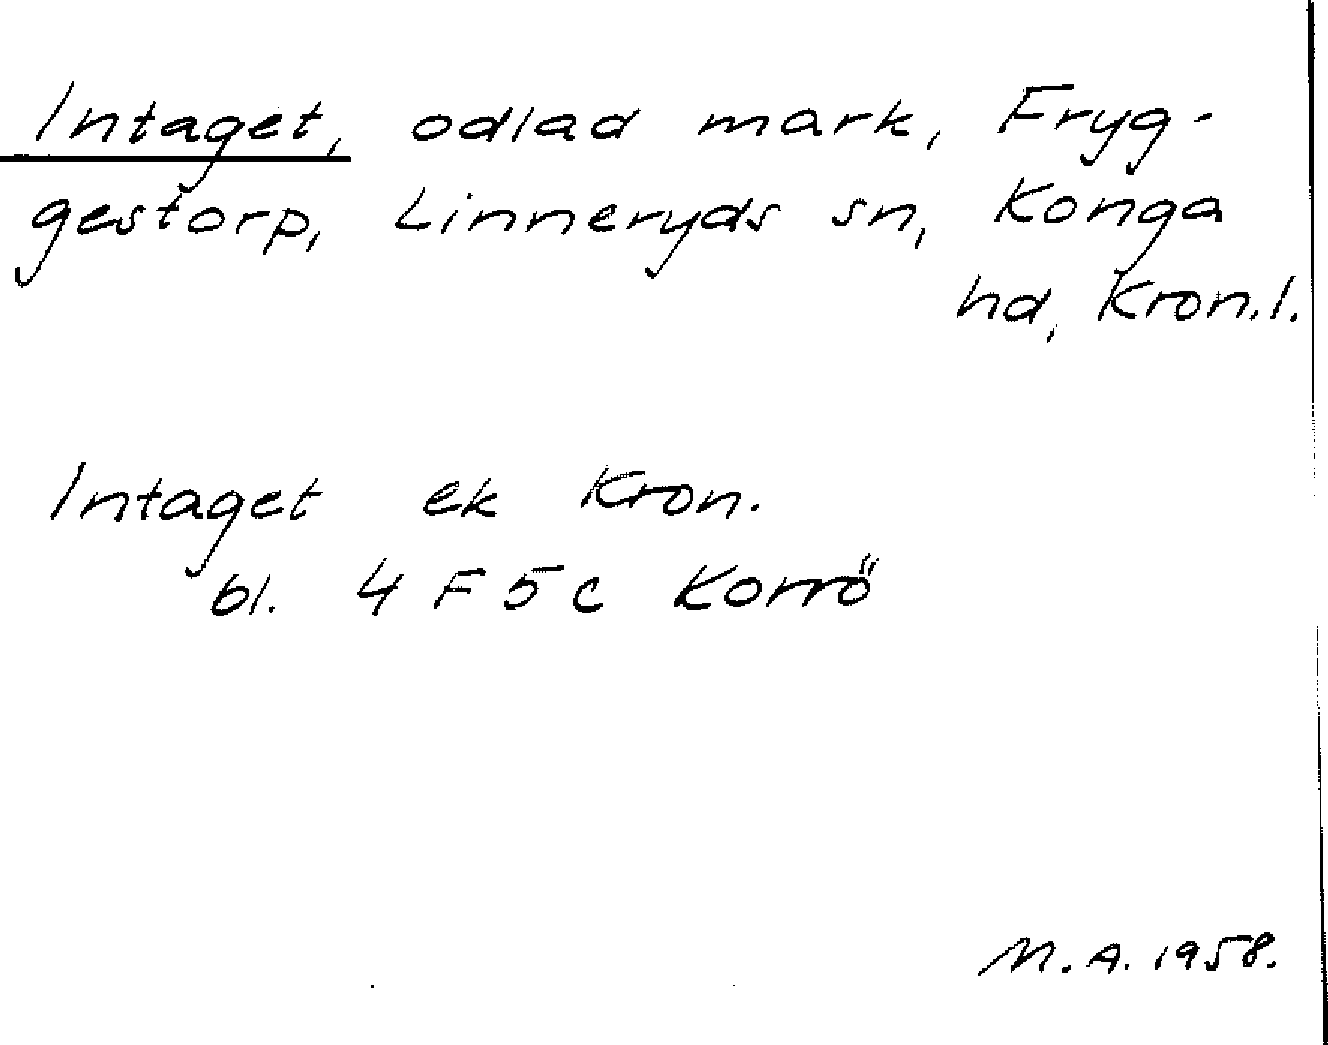 Intaget, odlad mark, Fryg-
gestorp, Linneryds sn, Konga
hd, Kron.l.
Intaget ek Kron.
bl. 4 F 5 c Korrö
M.A. 1958.